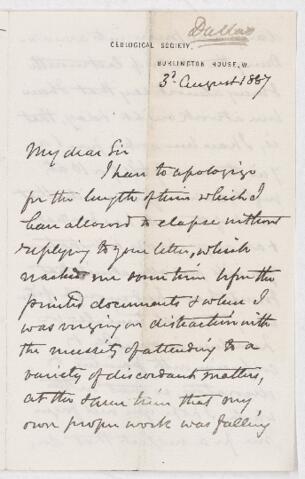 Dallas
GEOLOGICAL SOCIETY,
BURLINGTON HOUSE, W.
3d August 1887
My dear Sir
I have to apologize
for the length of time which I
have allowed to elapse without
replying to your letter, which
reached me some time before the
printed documents & when I
was verging on distraction with
the necessity of attending to a
variety of discordant matters,
at the same time that my
own proper work was falling